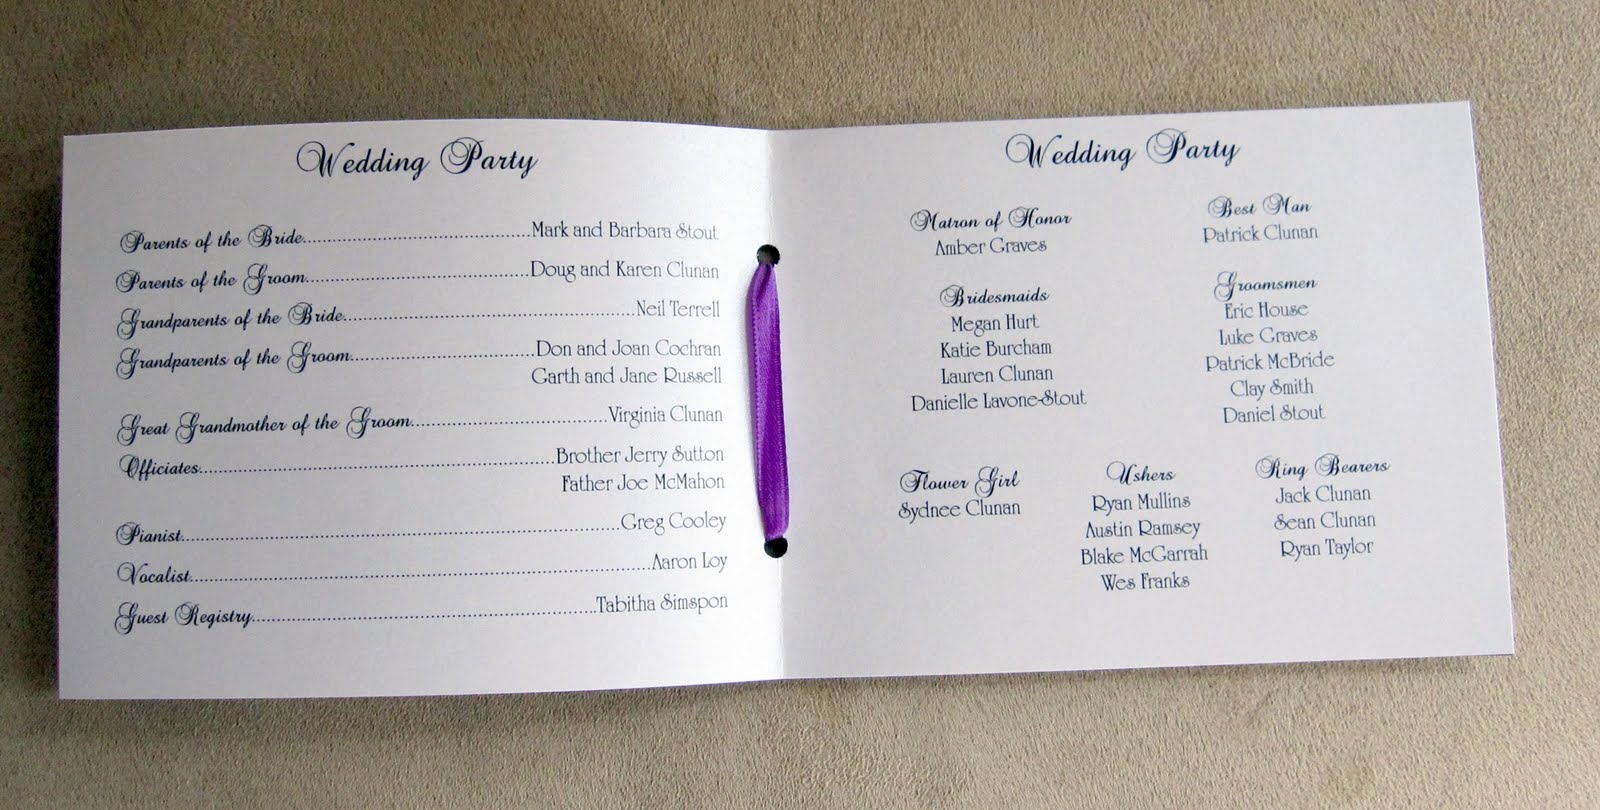 Wedding Party
Parents of the Bride........................................Mark and Barbara Stout
Parents of the Groom........................................Doug and Karen Clunan
Grandparents of the Bride........................................Neil Terrell
Grandparents of the Groom........................................Don and Joan Cochran
Garth and Jane Russell
Great Grandmother of the Groom........................................Virginia Clunan
Officiates........................................Brother Jerry Sutton
Father Joe McMahon
Pianist........................................Greg Cooley
Vocalist........................................Aaron Loy
Guest Registry........................................Tabitha Simspon
Wedding Party
Matron of Honor
Amber Graves
Best Man
Patrick Clunan
Bridesmaids
Megan Hurt
Katie Burcham
Lauren Clunan
Danielle Lavone-Stout
Groomsmen
Eric House
Luke Graves
Patrick McBride
Clay Smith
Daniel Stout
Flower Girl
Sydnee Clunan
Ushers
Ryan Mullins
Austin Ramsey
Blake McGarrah
Wes Franks
Ring Bearers
Jack Clunan
Sean Clunan
Ryan Taylor